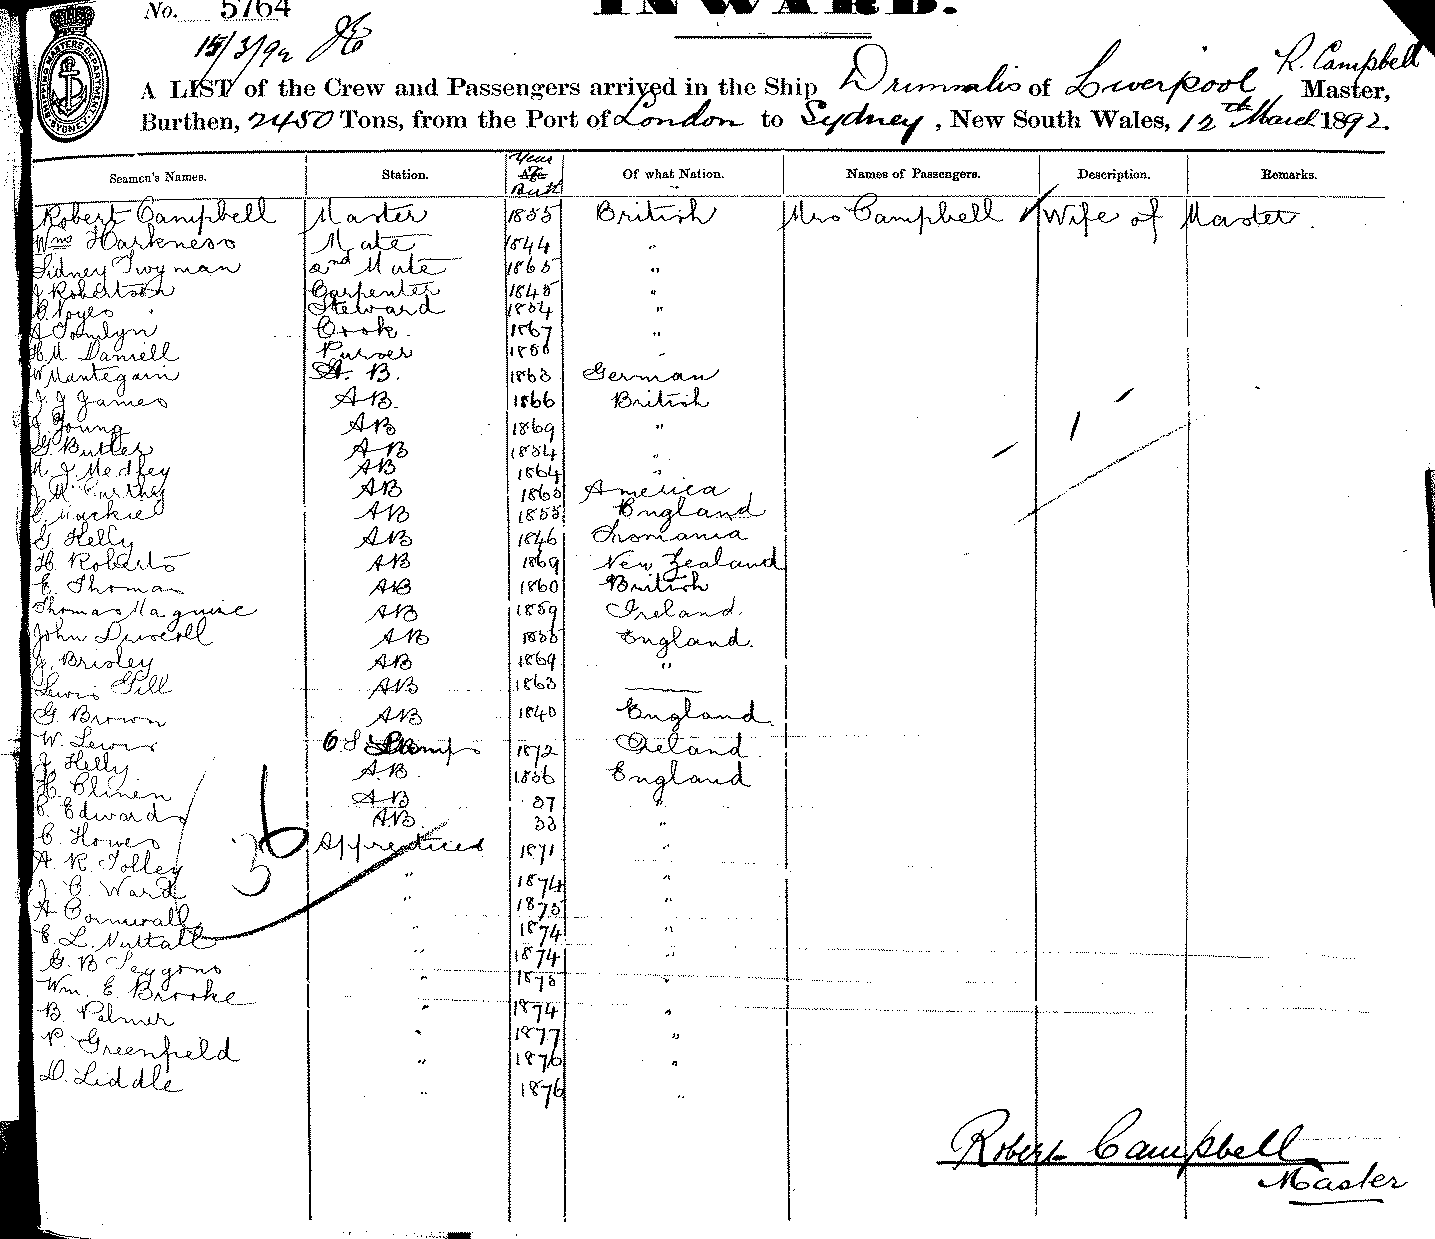 No. 5764
INWARD.
15/3/92
R. Campbell
A LIST of the Crew and Passengers arrived in the Ship Drumalis of Liverpool Master,
Burthen, 2450 Tons, from the Port of London to Sydney, New South Wales, 12th March 1892.
Seamen's Names. Station. Year of Birth Of what Nation. Names of Passengers. Description. Remarks.
Robert Campbell Master 1855 British Mrs Campbell Wife of Master.
Wm Harkness Mate 1844 "
Sidney Twyman 2nd Mate 1865 "
J Robertson Carpenter 1845 "
Noyes Steward 1854 "
A Tomlyn Cook 1867 "
H M Daniell Purser 1856
W Mantegain A. B. 1863 German
J. J James AB. 1866 British
J Young AB 1869 "
G. Butler AB 1854 "
J Medley AB 1864 "
J McCurthy AB 1865 America
C. Mackie AB 1855 England
Kelly AB 1846
H. Roberts AB 1869 New Zealand
E. Thomas AB 1860 British
Thomas Maguire AB 1859 Ireland.
John Driscoll AB 1855 England.
J. Brisley AB 1869 "
Lewis Gill AB 1863
G. Brown AB 1840 England.
W. Lewis 1872 Ireland
J Kelly AB. 1856 England
H. Clinen AB 57 "
C. Edwards AB. 53 "
C. Howes Apprentices 1871 "
A. R Tolley " 1874 "
J. C. Ward " 1875 "
A Cornwall " 1874 "
E. L. Nuttall " 1874 "
G. B " 1875 "
Wm. E Brooke " 1874 "
B. Palmer " 1877 "
P. Greenfield " 1876 "
D. Liddle " 1876 "
Robert Campbell
Master